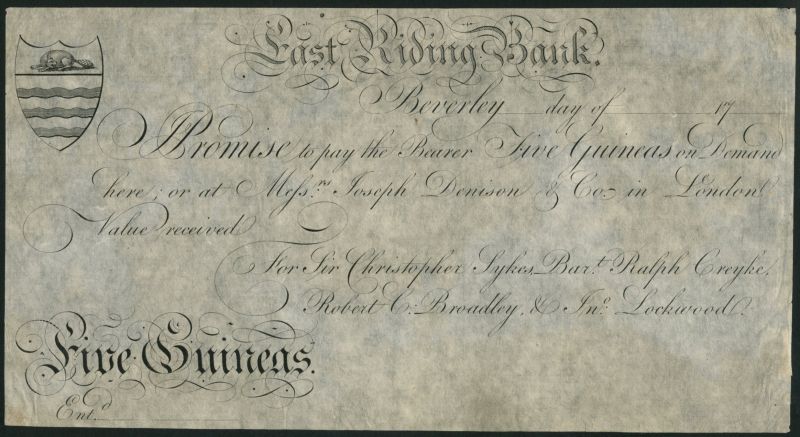 East Riding Bank.
Beverley day of 17
I Promise to pay the Bearer Five Guineas on Demand
here; or at Mefs.rs Joseph Denison & Co. in London
Value received
For Sir Christopher Sykes Bar.t Ralph Creyke,
Robert C. Broadley, & Jn.o Lockwood.
Five Guineas.
Ent.d